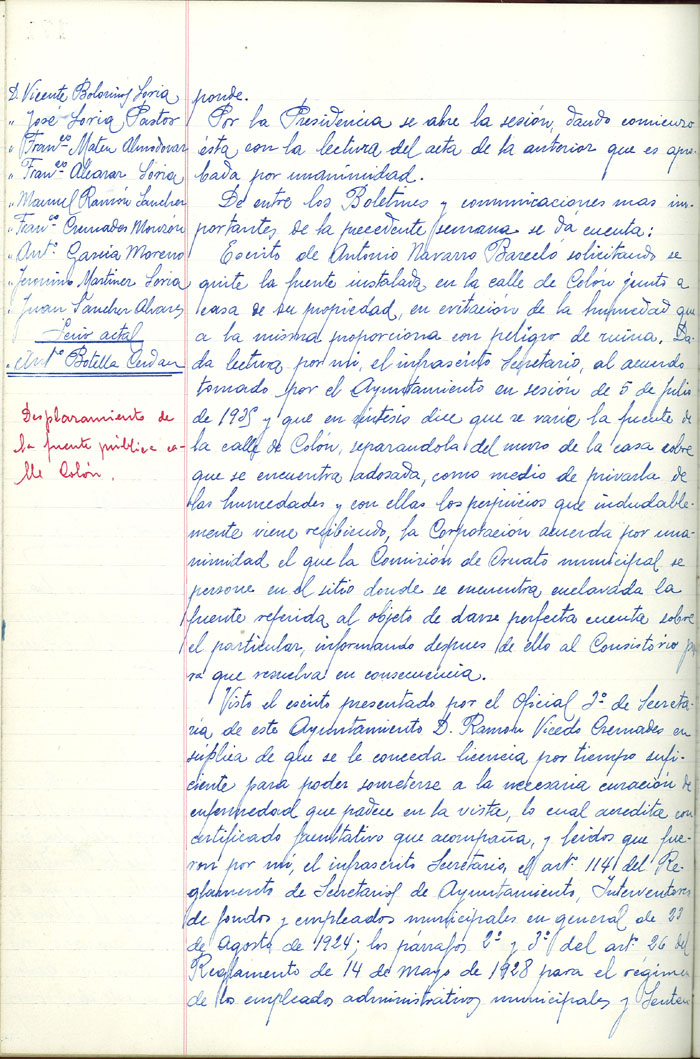 D. Vicente Bolorinos Soria
" José Soria Pastor
" Fran.co Mateu Almodovar
" Fran.co Alcaraz Soria
" Manuel Ramón Sanchez
" Fran.co Cremades Monzón
" Ant.o Garcia Moreno
" Jeronimo Martinez Soria
" Juan Sanchez Alvarez
Secrio actal
" Ant.o Botella Cerdan
Desplazamiento de
la fuente pública ca-
lle Colón.
ponde.
Por la Presidencia se abre la sesión, dando comienzo
ésta con la lectura del acta de la anterior que es apro-
bada por unanimidad.
De entre los Boletines y comunicaciones mas im-
portantes de la precedente semana se dá cuenta:
Escrito de Antonio Navarro Barceló solicitando se
quite la fuente instalada en la calle de Colón junto a
casa de su propiedad, en evitación de la humedad que
a la misma proporciona con peligro de ruina. Da-
da lectura por mi, el infrascrito Secretario, al acuerdo
tomado por el Ayuntamiento en sesión de 5 de Julio
de 1935 y que en síntesis dice que se varía la fuente de
la calle de Colón, separandola del muro de la casa sobre
que se encuentra adosada, como medio de privarla de
las humedades y con ellas los perjuicios que indudable-
mente viene recibiendo, la Corporación acuerda por una-
nimidad el que la Comisión de Ornato municipal se
persone en el sitio donde se encuentra enclavada la
fuente referida al objeto de darse perfecta cuenta sobre
el particular, informando despues de ello al Consistorio pa-
ra que resuelva en consecuencia.
Visto el escrito presentado por el Oficial 3º de Secreta-
ría de este Ayuntamiento D. Ramon Vicedo Cremades en
súplica de que se le conceda licencia por tiempo sufi-
ciente para poder someterse a la necesaria curación de
enfermedad que padece en la vista, lo cual acredita con
certificado facultativo que acompaña, y leidos que fue-
ron por mi, el infrascrito Secretario, el artº 114 del Re-
glamento de Secretarios de Ayuntamiento, Interventores
de fondos y empleados municipales en general de 23
de Agosto de 1924; los párrafos 2º y 3º del artº 26 del
Reglamento de 14 de Mayo de 1928 para el régimen
de los empleados administrativos municipales y Senten